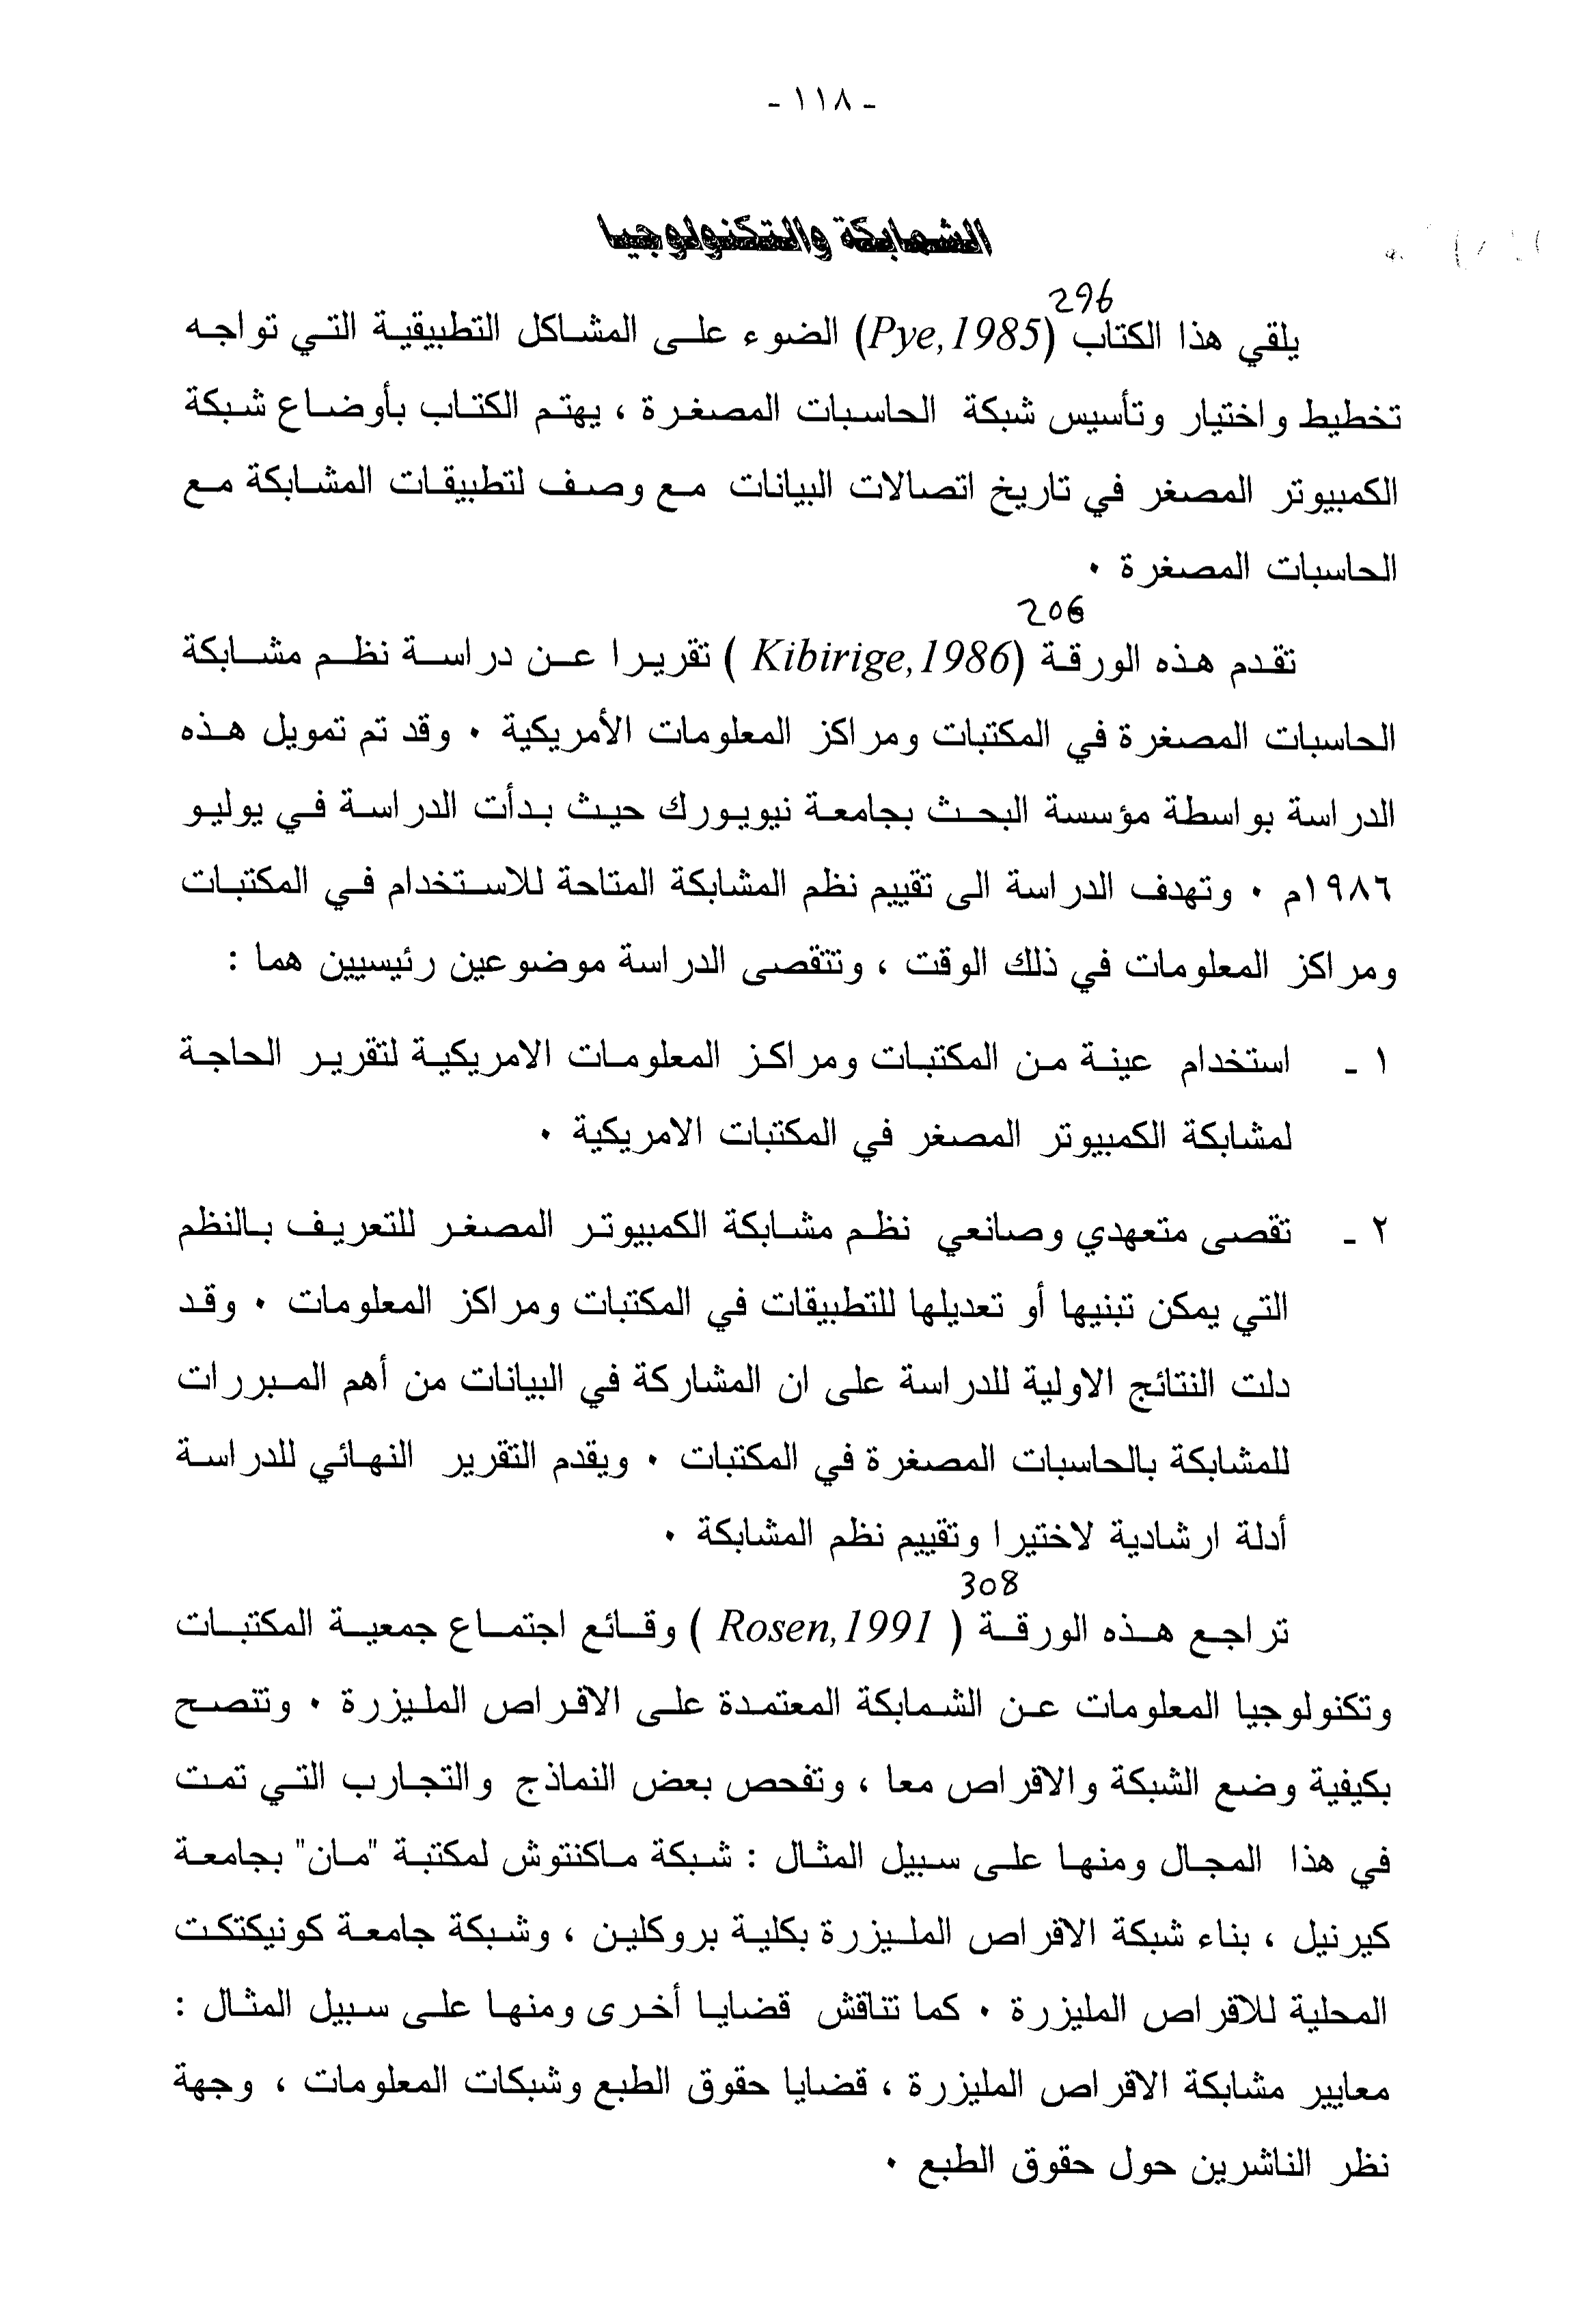 - ١١٨ -
الشمابكة والتكنولوجيا
296
يلقي هذا الكتاب (Pye,1985) الضوء على المشاكل التطبيقية التي تواجه
تخطيط واختيار وتأسيس شبكة الحاسبات المصغرة ، يهتم الكتاب بأوضاع شبكة
الكمبيوتر المصغر في تاريخ اتصالات البيانات مع وصف لتطبيقات المشابكة مع
الحاسبات المصغرة ٠
206
تقدم هذه الورقة (Kibirige,1986 ) تقريرا عن دراسة نظم مشابكة
الحاسبات المصغرة في المكتبات ومراكز المعلومات الأمريكية ٠ وقد تم تمويل هذه
الدراسة بواسطة مؤسسة البحث بجامعة نيويورك حيث بدأت الدراسة في يوليو
١٩٨٦م ٠ وتهدف الدراسة الى تقييم نظم المشابكة المتاحة للاستخدام في المكتبات
ومراكز المعلومات في ذلك الوقت ، وتتقصى الدراسة موضوعين رئيسيين هما :
١ - استخدام عينة من المكتبات ومراكز المعلومات الامريكية لتقرير الحاجة
لمشابكة الكمبيوتر المصغر في المكتبات الامريكية ٠
٢ - تقصى متعهدي وصانعي نظم مشابكة الكمبيوتر المصغر للتعريف بالنظم
التي يمكن تبنيها أو تعديلها للتطبيقات في المكتبات ومراكز المعلومات ٠ وقد
دلت النتائج الاولية للدراسة على ان المشاركة في البيانات من أهم المبررات
للمشابكة بالحاسبات المصغرة في المكتبات ٠ ويقدم التقرير النهائي للدراسة
أدلة ارشادية لاختيرا وتقييم نظم المشابكة ٠
308
تراجع هذه الورقة ( Rosen,1991 ) وقائع اجتماع جمعية المكتبات
وتكنولوجيا المعلومات عن الشمابكة المعتمدة على الاقراص المليزرة ٠ وتنصح
بكيفية وضع الشبكة والاقراص معا ، وتفحص بعض النماذج والتجارب التي تمت
في هذا المجال ومنها على سبيل المثال : شبكة ماكنتوش لمكتبة "مان" بجامعة
كيرنيل ، بناء شبكة الاقراص المليزرة بكلية بروكلين ، وشبكة جامعة كونيكتكت
المحلية للاقراص المليزرة ٠ كما تناقش قضايا أخرى ومنها على سبيل المثال :
معايير مشابكة الاقراص المليزرة ، قضايا حقوق الطبع وشبكات المعلومات ، وجهة
نظر الناشرين حول حقوق الطبع ٠